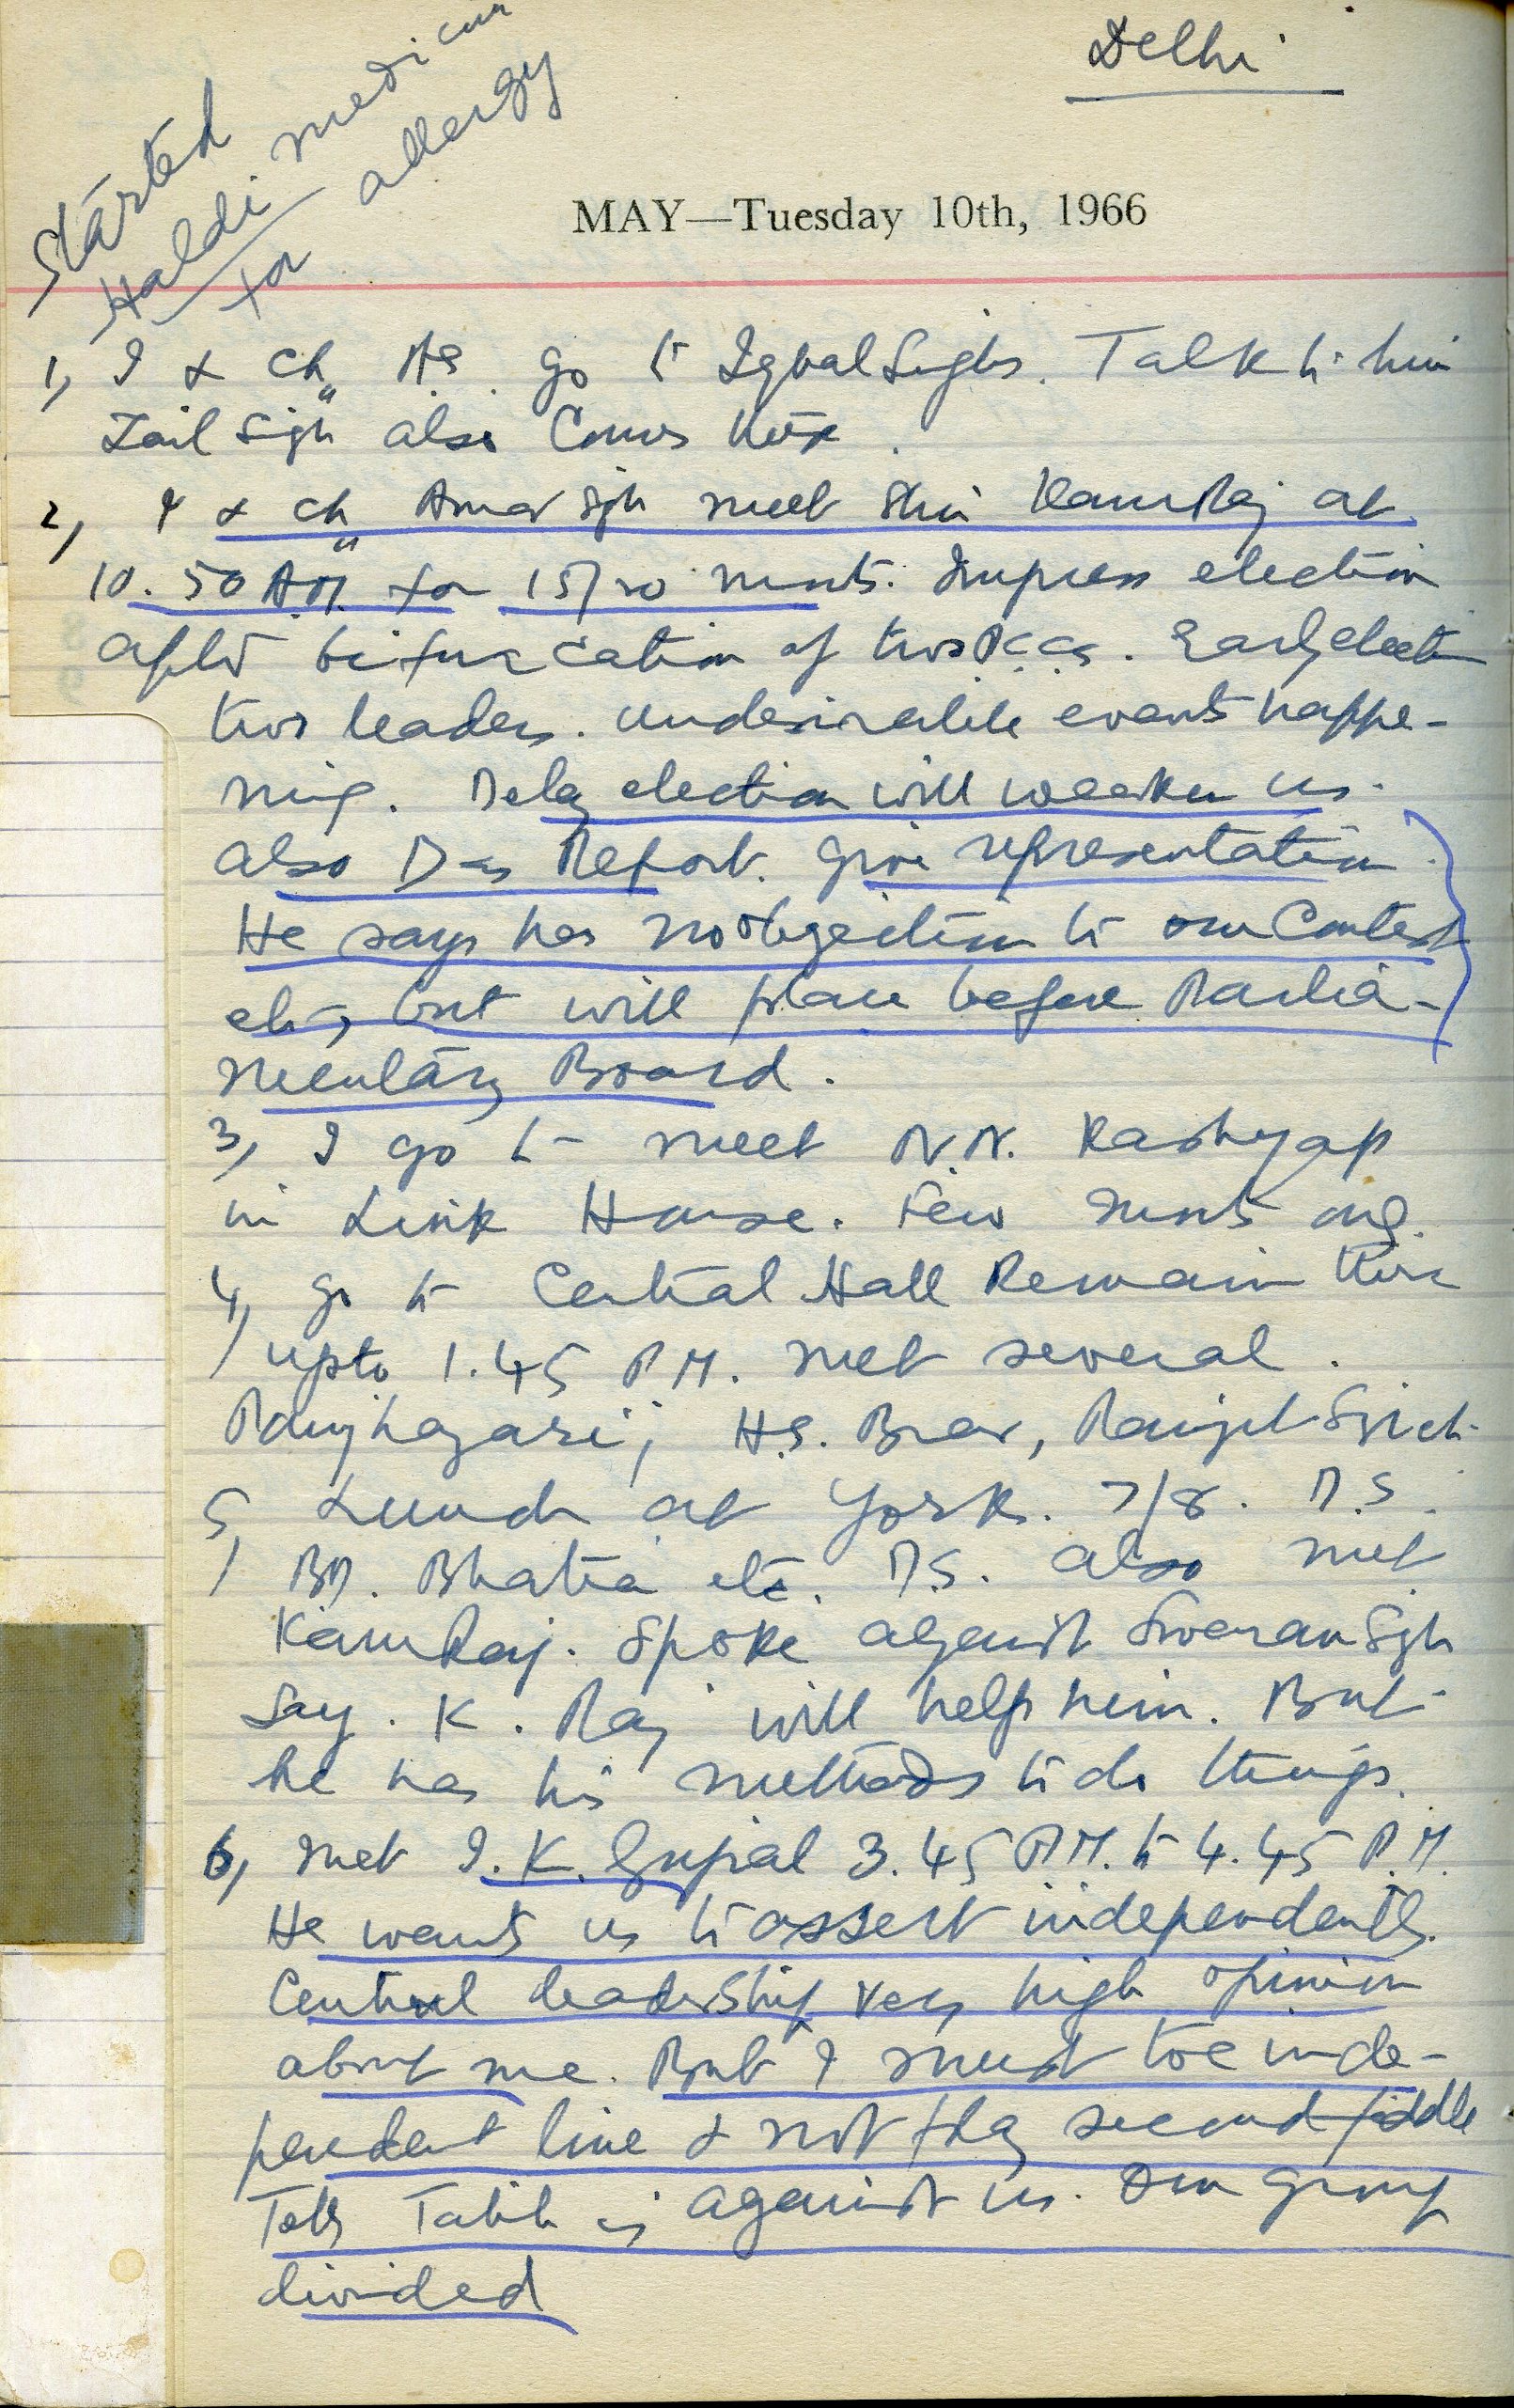 Delhi
Started
Haldi medicine
for allergy
MAY—Tuesday 10th, 1966
1, I & Ch. A.S. go to Iqbal Singhs. Talk to him
Zail Sigh also comes there.
2, I & Ch Amar Sgh meet Shri KamRaj at
10.50 AM. for 15/20 munts. Impress election
after bifurcation of two P.C.Cs. Early election
two leaders. Undesirable events happe-
ning. Delay election will weaken us.
also Das Report. Give representation.
He says has no objection to our Contest
etc, but will place before Parlia-
mentary Board.
3, I go to meet N.N. Kashyap
in Link House. Few munts only.
4, go to Central Hall Remain there
upto 1.45 P.M. met several.
H.S. Brar, Ranjit Sgh etc.
5, Lunch at York. 7/8. D.S.
BD. Bhatia etc. D.S. also met
KamRaj. Spoke against Swaran Sgh
Say. K. Raj will help him. But
he has his methods to do things.
6, met I.K. Gujral 3.45 P.M. to 4.45 P.M.
He wants us to assert independently.
Central leadership very high opinion
about me. But I must toe inde-
pendent line & not play second fiddle
Tells is against us. Our group
divided